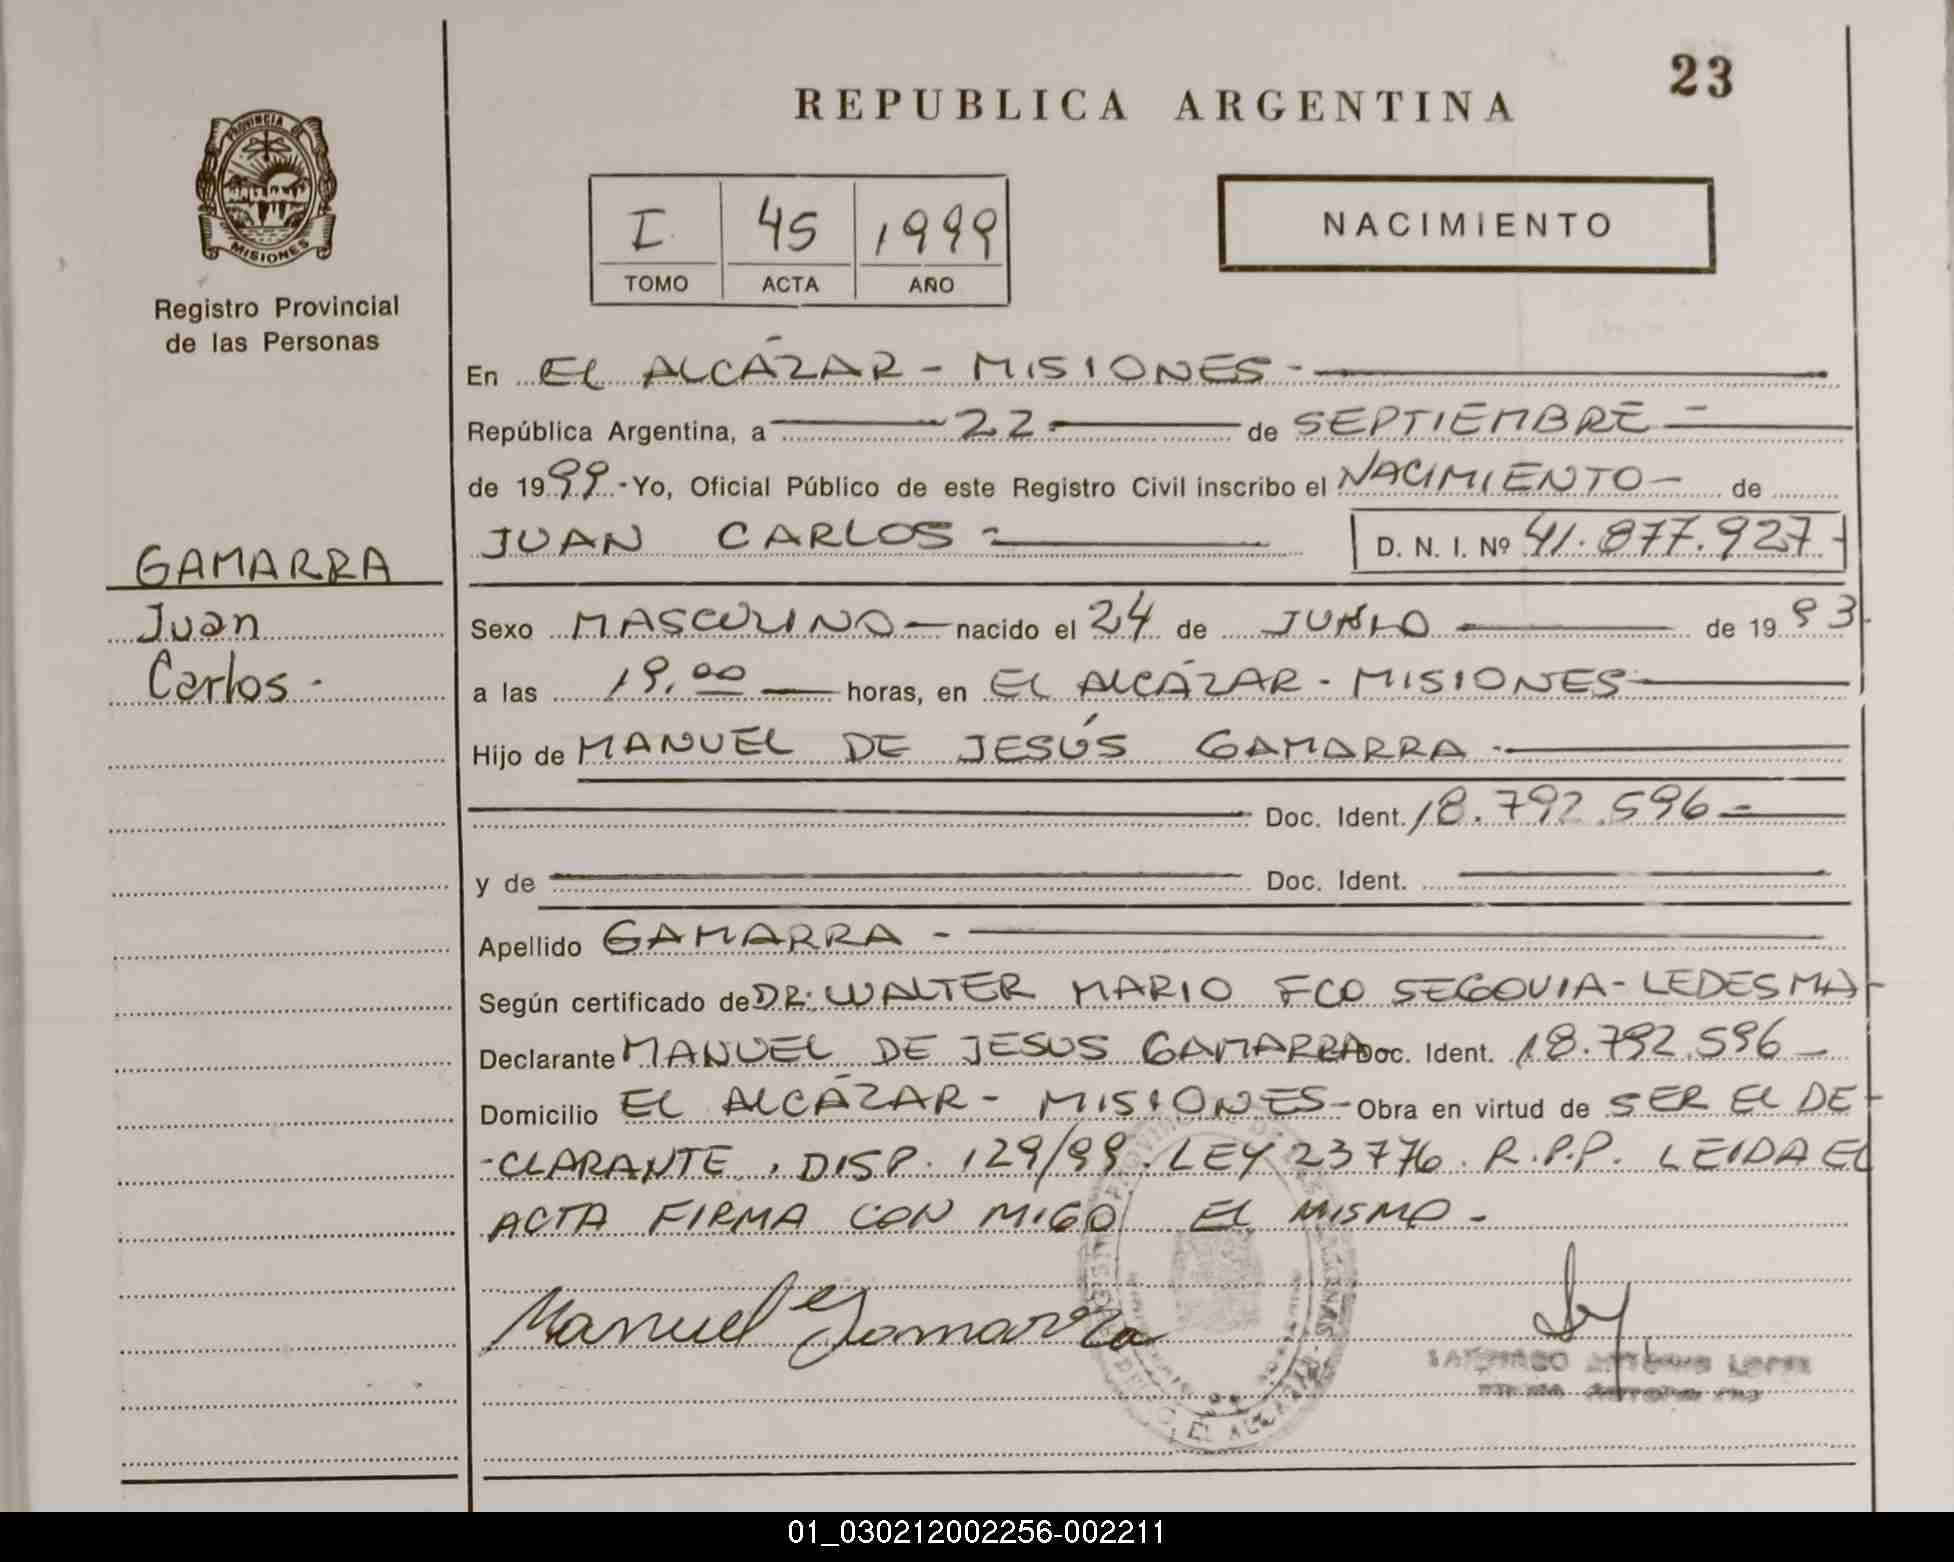 23
REPUBLICA ARGENTINA
PROVINCIA DE
MISIONES
Registro Provincial
de las Personas
I 45 1999
TOMO ACTA AÑO
NACIMIENTO
En EL ALCÁZAR - MISIONES -
República Argentina, a 22 de SEPTIEMBRE -
de 1999 - Yo, Oficial Público de este Registro Civil inscribo el NACIMIENTO - de
JUAN CARLOS - D. N. I. Nº 41.877.927-
GAMARRA
Juan
Carlos -
Sexo MASCULINO - nacido el 24 de JUNIO de 1993
a las 19,00 horas, en EL ALCÁZAR - MISIONES
Hijo de MANUEL DE JESÚS GAMARRA -
Doc. Ident. 18.792.596 -
y de Doc. Ident.
Apellido GAMARRA -
Según certificado de DR: WALTER MARIO FCO SEGOVIA - LEDESMA -
Declarante MANUEL DE JESUS GAMARRA Doc. Ident. 18.792.596 -
Domicilio EL ALCÁZAR - MISIONES - Obra en virtud de SER EL DE-
-CLARANTE, DISP. 129/99. LEY 23776. R.P.P. LEIDA EL
ACTA FIRMA CON MIGO EL MISMO -
Manuel Gamarra
ANTONIO LOPEZ
EL ALCAZAR
01_030212002256-002211